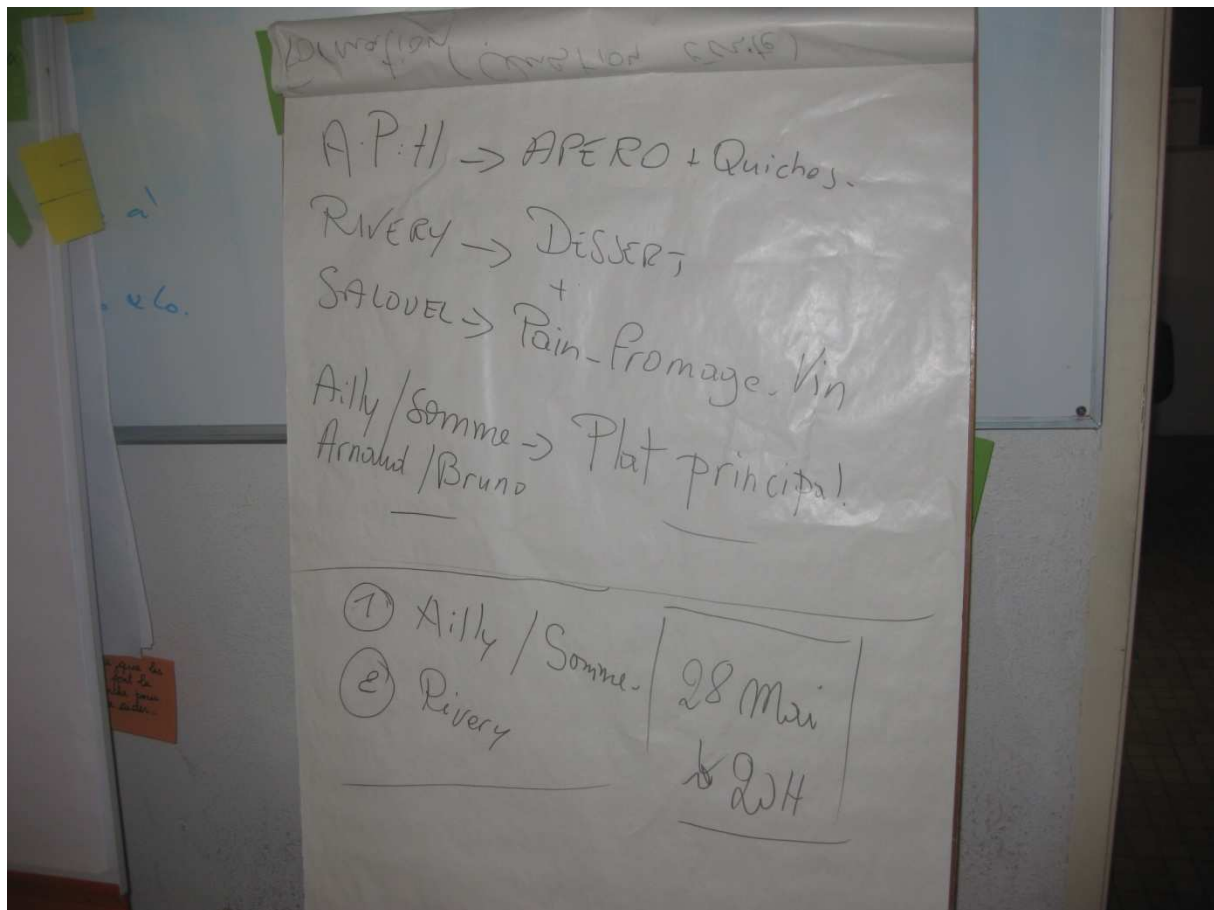 A.P.H → APERO + Quiches.
RIVERY → DESSERT
+
SALOUEL → Pain-fromage. Vin
Ailly/Somme → Plat principal.
Arnaud/Bruno
① Ailly / Somme.
② Rivery
28 Mai
20H
à
que les
font le